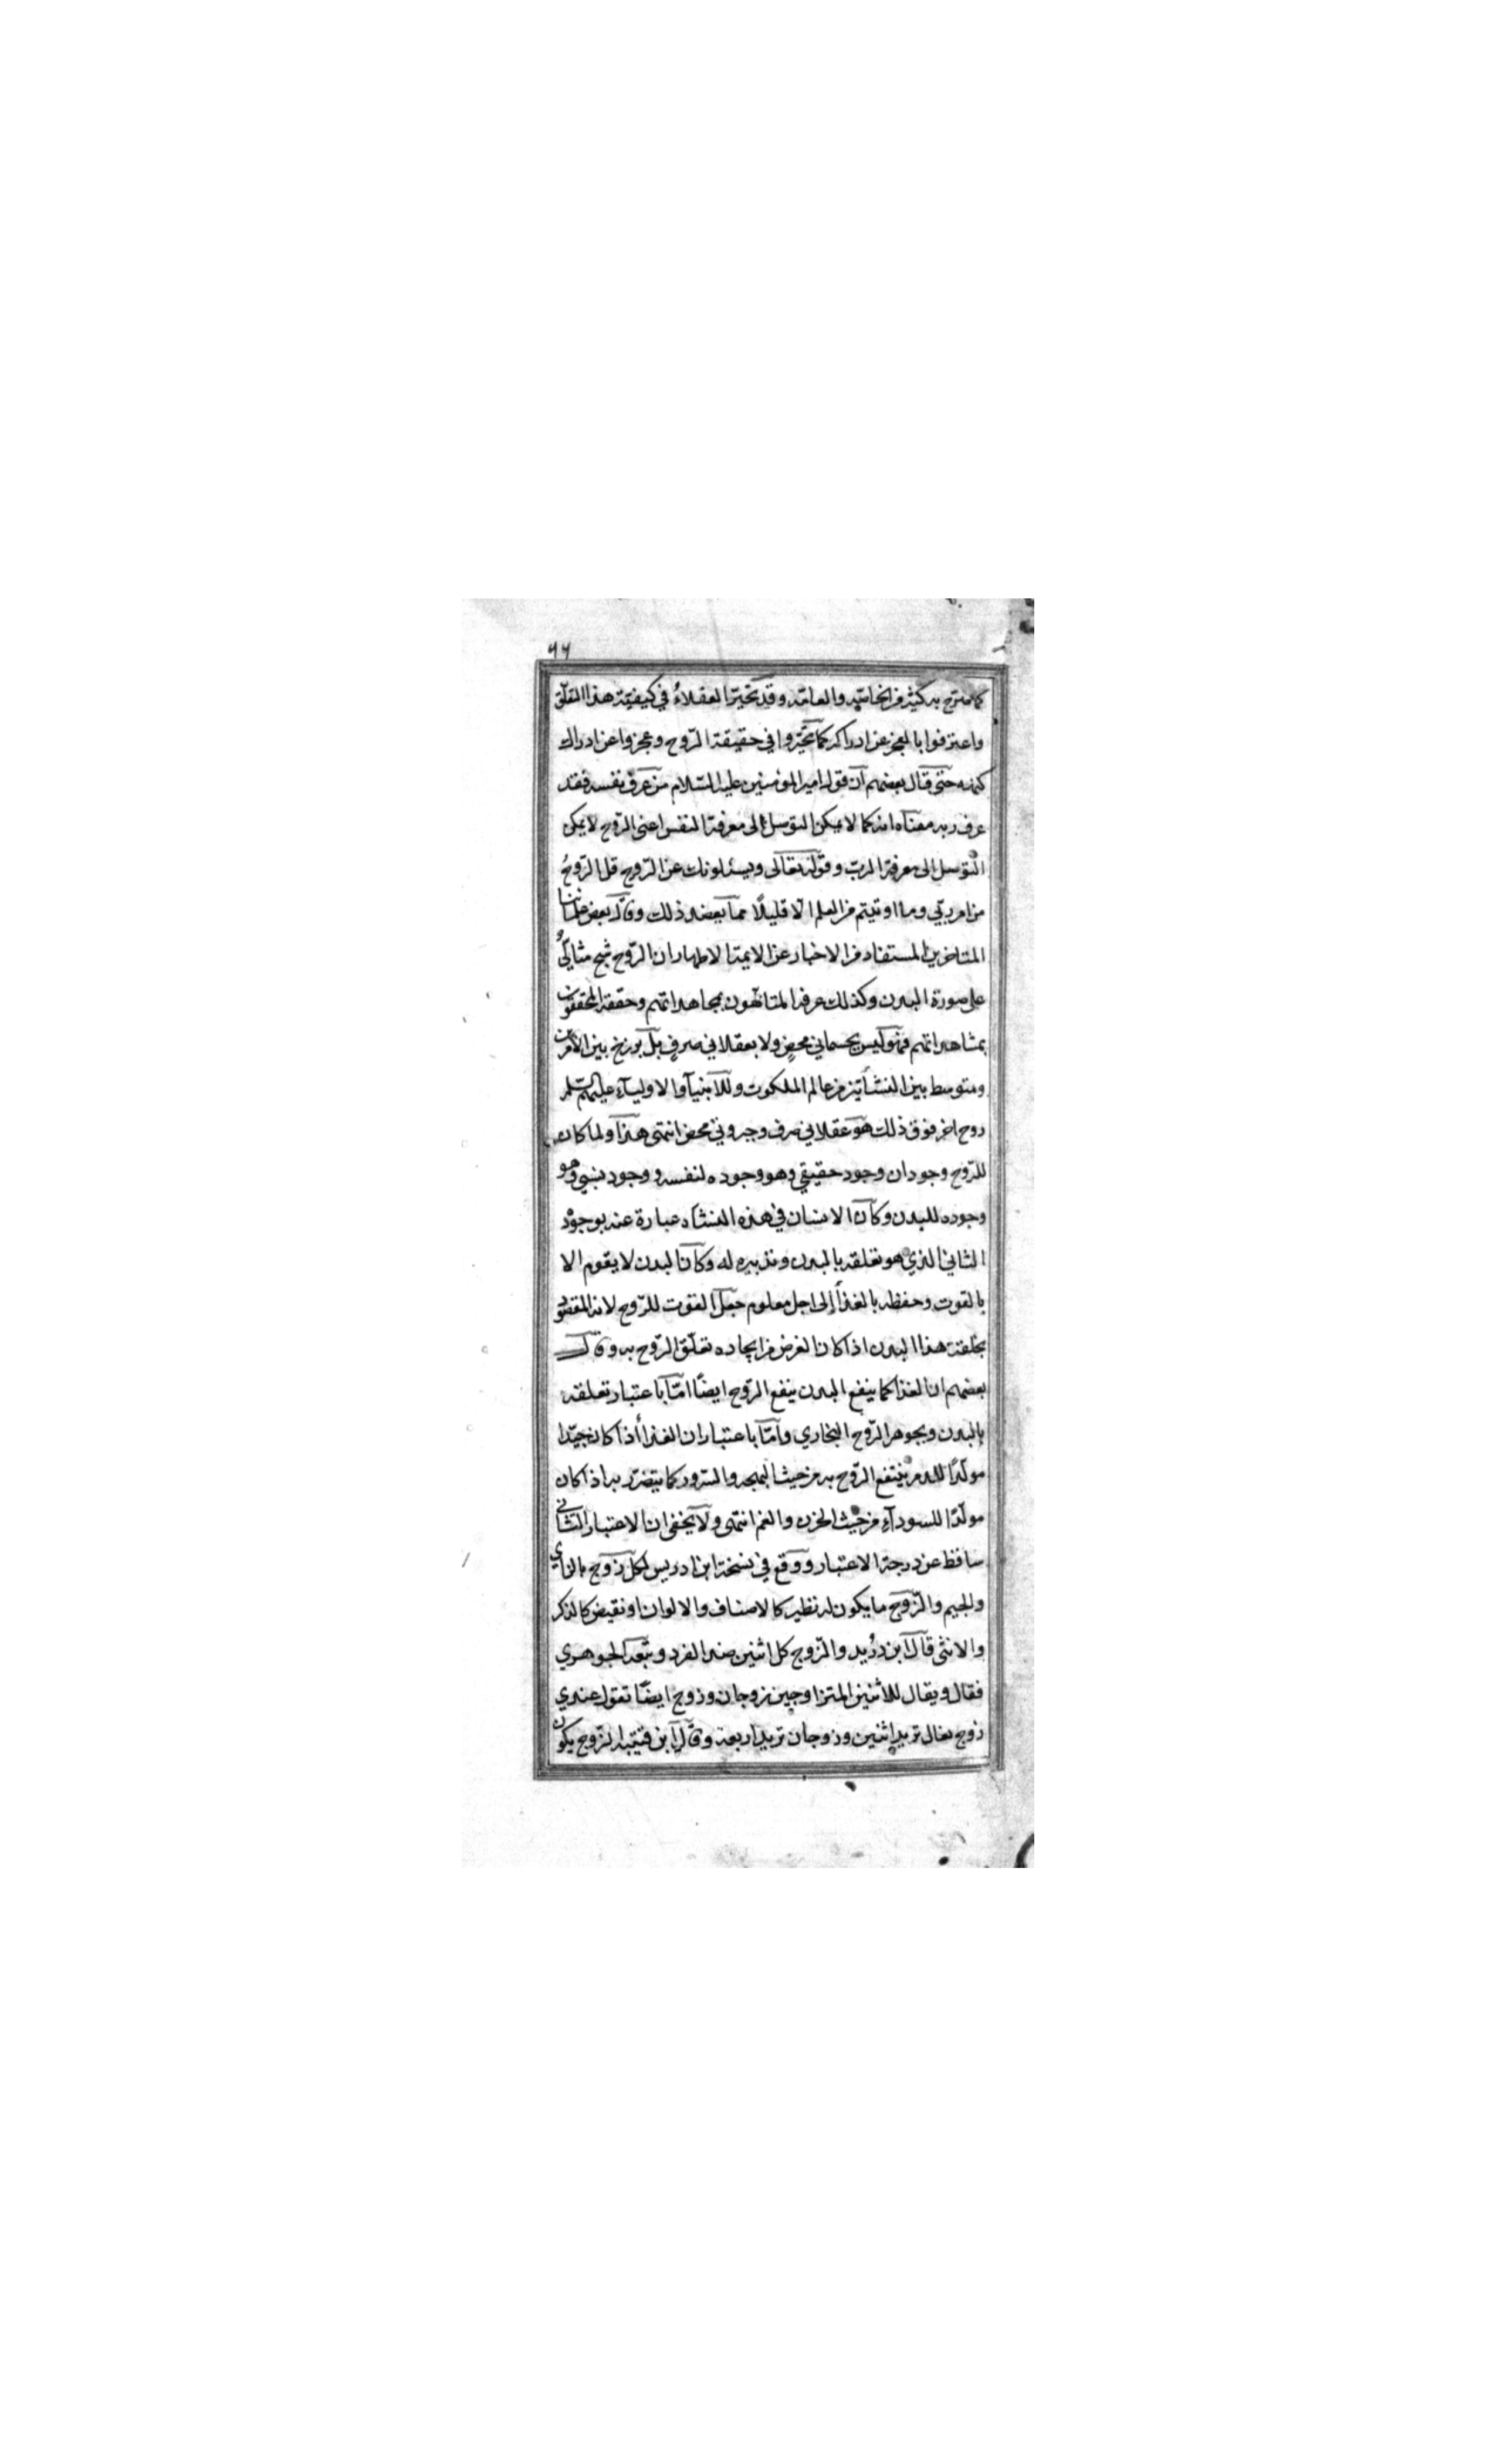 ٦٦
كما صرّح به كثير من الخاصّة والعامّة وقد تحيّر العقلاءُ في كيفيّة هذا التعلّق
واعترفوا بالعجز عن ادراكه كما تحيّروا في حقيقة الرّوح وعجزوا عن ادراك
كنهه حتى قال بعضهم انّ قول امير المؤمنين عليه السّلام من عرف نفسه فقد
عرف ربه معناه انه كما لا يمكن التوسل الى معرفة النفس اعني الرّوح لا يمكن
التوسل الى معرفة الرب وقوله تعالى ويسئلونك عن الرّوح قل الرّوحُ
من امر ربّي وما اوتيتم من العلم الّا قليلًا مما يعضد ذلك وقال بعض علمائنا
المتاخرين المستفاد من الاخبار عن الايمة الاطهار ان الرّوح شبح مثاليٌّ
على صورة البدن وكذلك عرفه المتالّهون بمجاهداتهم وحققه المحققون
بمشاهداتهم فهو ليس بجسماني محضٍ ولا بعقلاني صرفٍ بل برزخ بين الأمرين
ومتوسط بين النشأتين من عالم الملكوت وللانبيآء والاوليآء عليهم السّلم
روح اخر فوق ذلك هو عقلاني صرف وجبروتي محض انتهى هذا ولما كان
للرّوح وجودان وجود حقيقي وهو وجوده لنفسه ووجود نسبي وهو
وجوده للبدن وكان الانسان في هذه النشاه عبارة عنه بوجوده
الثاني الذي هو تعلقه بالبدن وتدبيره له وكان البدن لا يقوم الا
بالقوت وحفظه بالغذأ إلى اجل معلوم جعل القوت للرّوح لانه المقصود
بخلقته هذا البدن اذ كان الغرض من ايجاده تعلّق الرّوح به وقال
بعضهم ان الغذا كما ينفع البدن ينفع الرّوح ايضًا امّا باعتبار تعلقه
بالبدن وبجوهر الرّوح البخاري وامّا باعتبار ان الغذأ اذا كان جيّدا
مولّدًا للدم ينتفع الرّوح به من حيث البهجه والسّرور كما يتضرّر به اذا كان
مولّدًا للسودآء من حيث الحزن والغم انتهى ولا يخفى ان الاعتبار الثاني
ساقط عن درجة الاعتبار ووقع في نسخة ابن ادريس لكل زوج بالزاي
والجيم والزّوج ما يكون له نظير كالاصناف والالوان او نقيض كالذكر
والانثى قال ابن دُريد والزّوج كل اثنين ضد الفرد وتبعه الجوهري
فقال ويقال للأثنين المتزاوجين زوجان وزوج ايضًا تقول عندي
زوج نعال تريد اثنين وزوجان تريد اربعة وقال ابن قتيبه الزّوج يكون